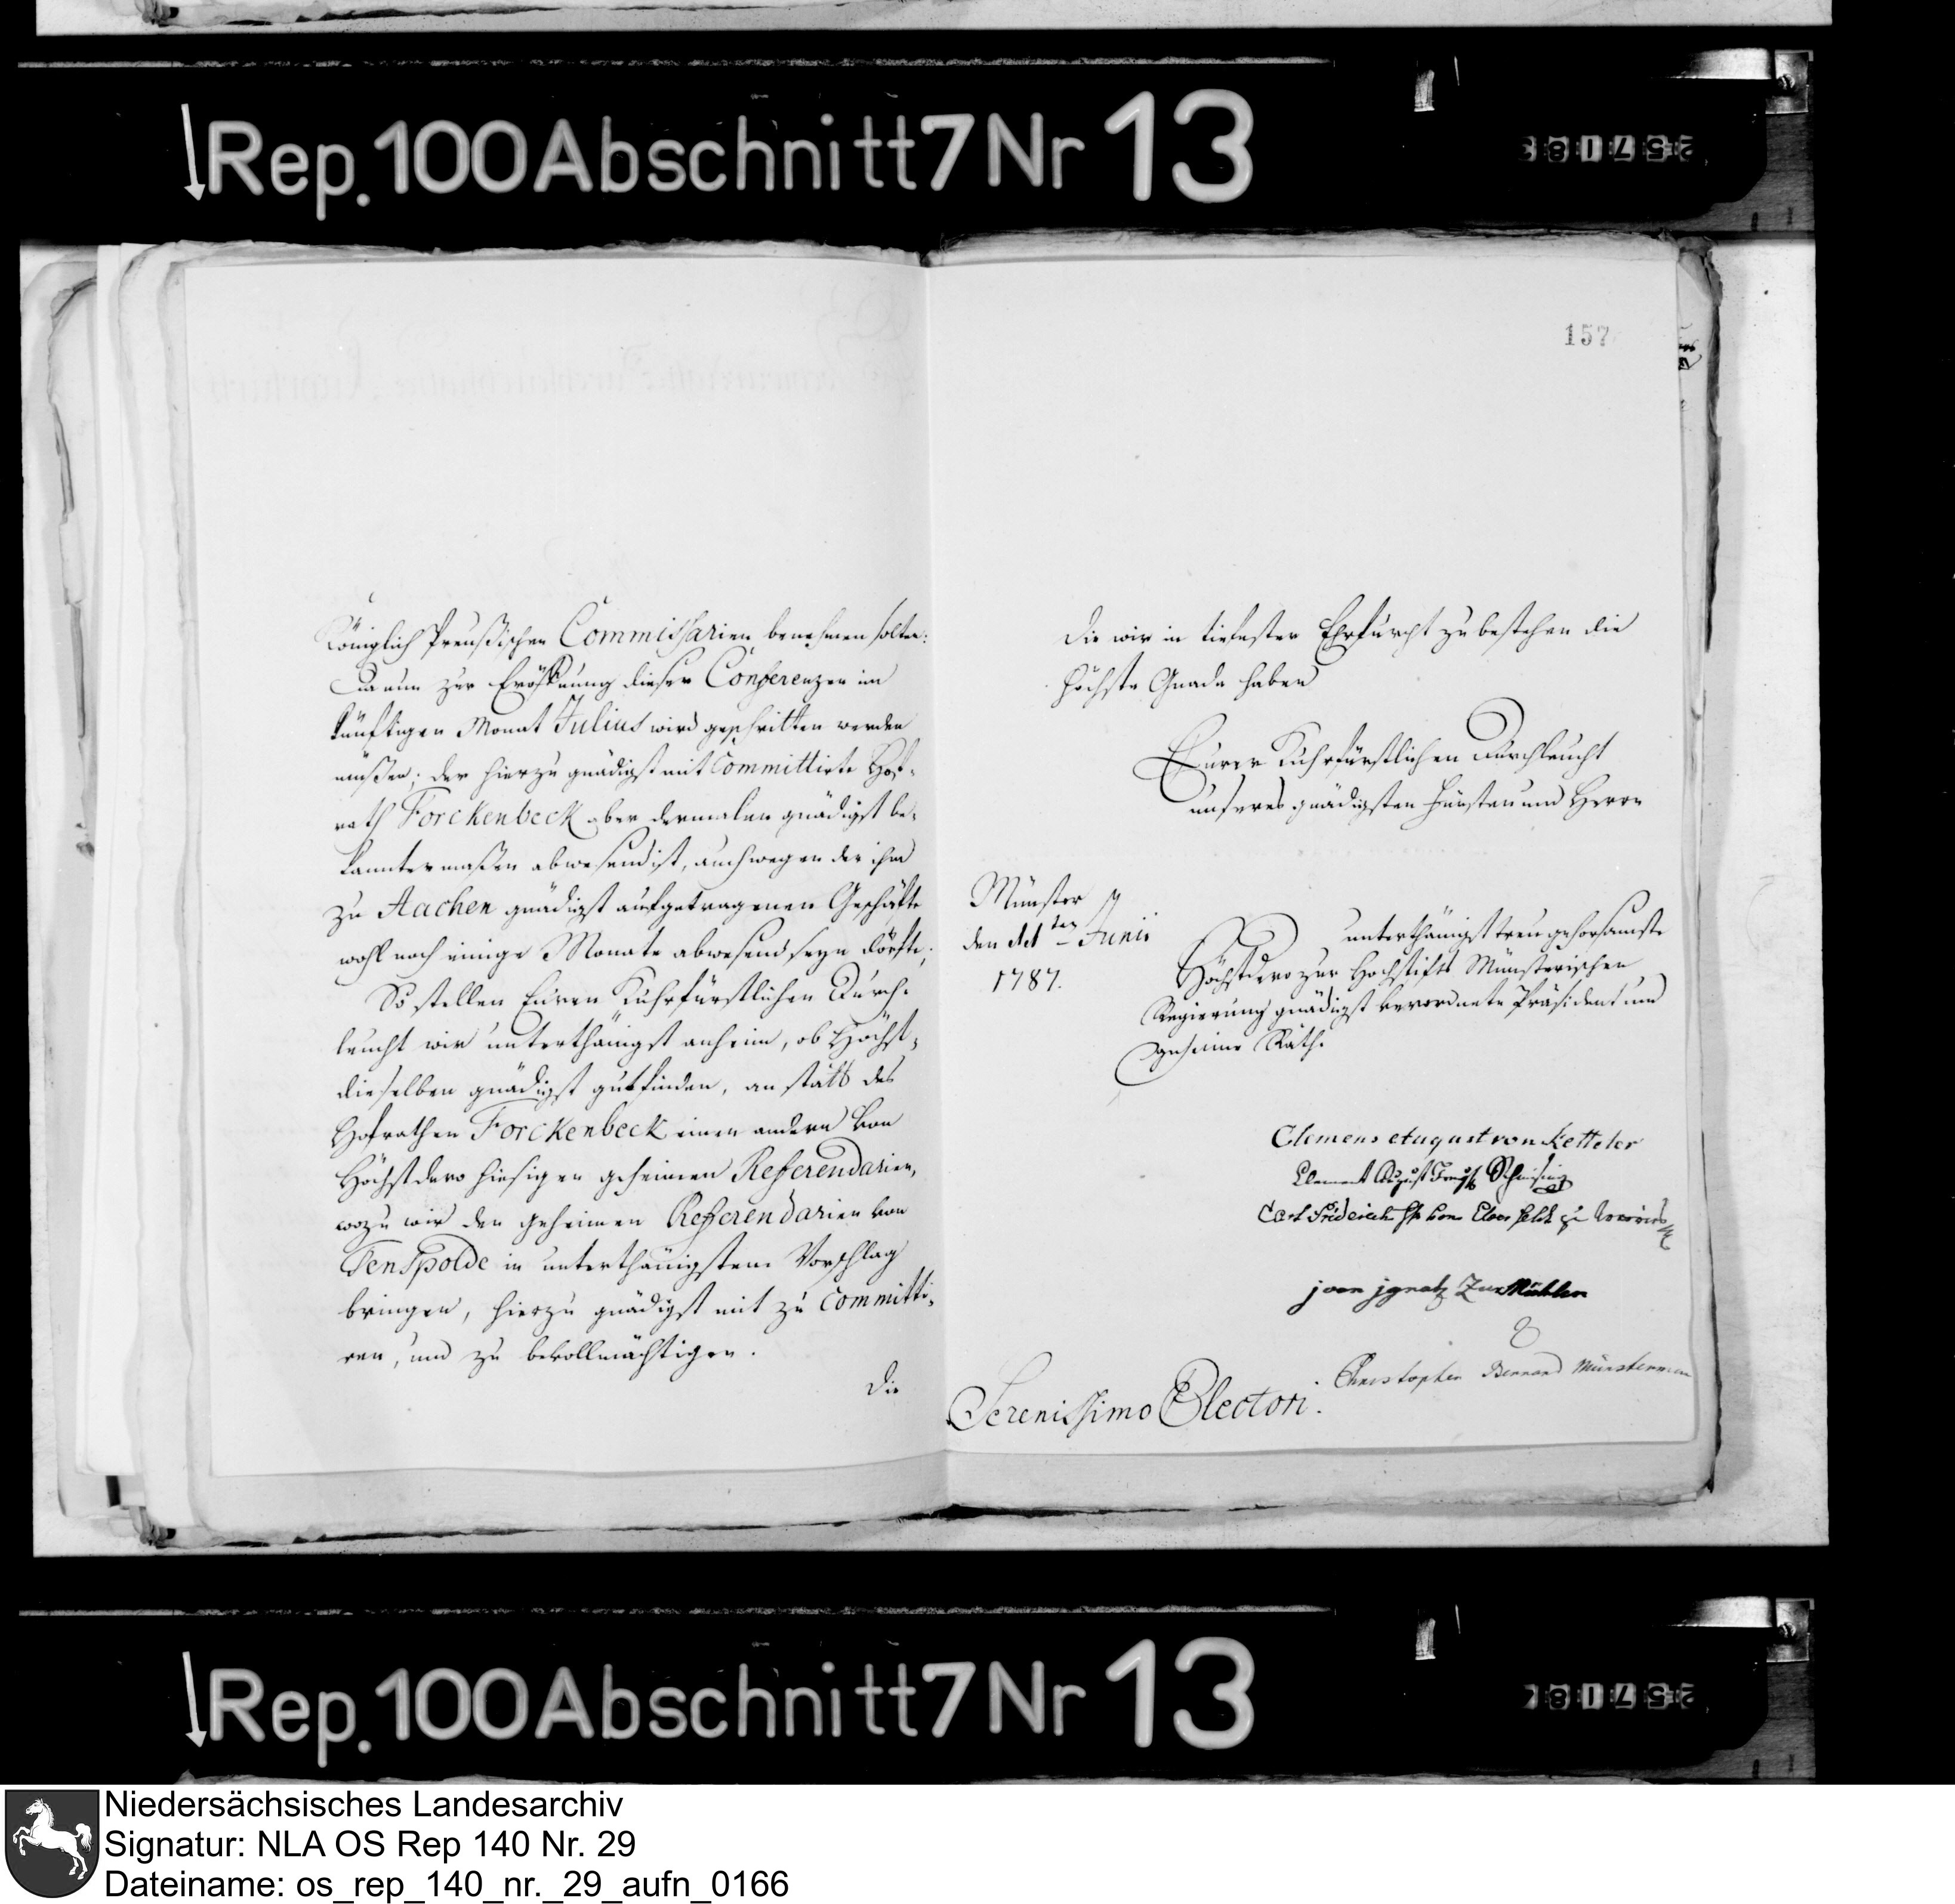 Rep. 100 Abschnitt 7 Nr 13
25718
157
Königlich Preußischen Commissarien benehmen solten:
Da nun zur Eröffnung dieser Conferenzen im
künftigen Monat Julius wird geschritten werden
müßen; der hierzu gnädigst mit Committirte Hof-
rath Forckenbeck aber dermalen gnädigst be-
kanntermaßen abwesend ist, auch wegen der ihm
zu Aachen gnädigst aufgetragenen Geschäfte
wohl noch einige Monate abwesend seyn dörfte;
So stellen Euren Kuhrfürstlichen Durch-
leucht wir unterthänigst anheim, ob Höchst-
dieselben gnädigst gutfinden, an statt des
Hofrathen Forckenbeck einen andern von
Höchstdero hiesigen geheimen Referendarien,
wozu wir den geheimen Referendarien von
Tenspolde in unterthänigstem Vorschlag
bringen, hierzu gnädigst mit zu committi-
ren, und zu bevollmächtigen.
Die
Die wir in tiefester Ehrfurcht zu bestehen die
höchste Gnade haben
Eurer Kuhrfürstlichen Durchleucht
unseres gnädigsten Fürsten und Herrn
Münster
den 11ten Junii
1787.
unterthänigst treu gehorsamste
Höchstdero zur Hochstifts Münsterischen
Regierung gnädigst verordnete Präsident und
geheime Räthe
Clemens August von Ketteler
Clement August Schmising
Carl Friderich von Elverfeldt zu
joan jgnatz Zur Mühlen
Christopher Bernard Münsterman
Serenissimo Electori.
Rep. 100 Abschnitt 7 Nr 13
25718
Niedersächsisches Landesarchiv
Signatur: NLA OS Rep 140 Nr. 29
Dateiname: os_rep_140_nr._29_aufn_0166